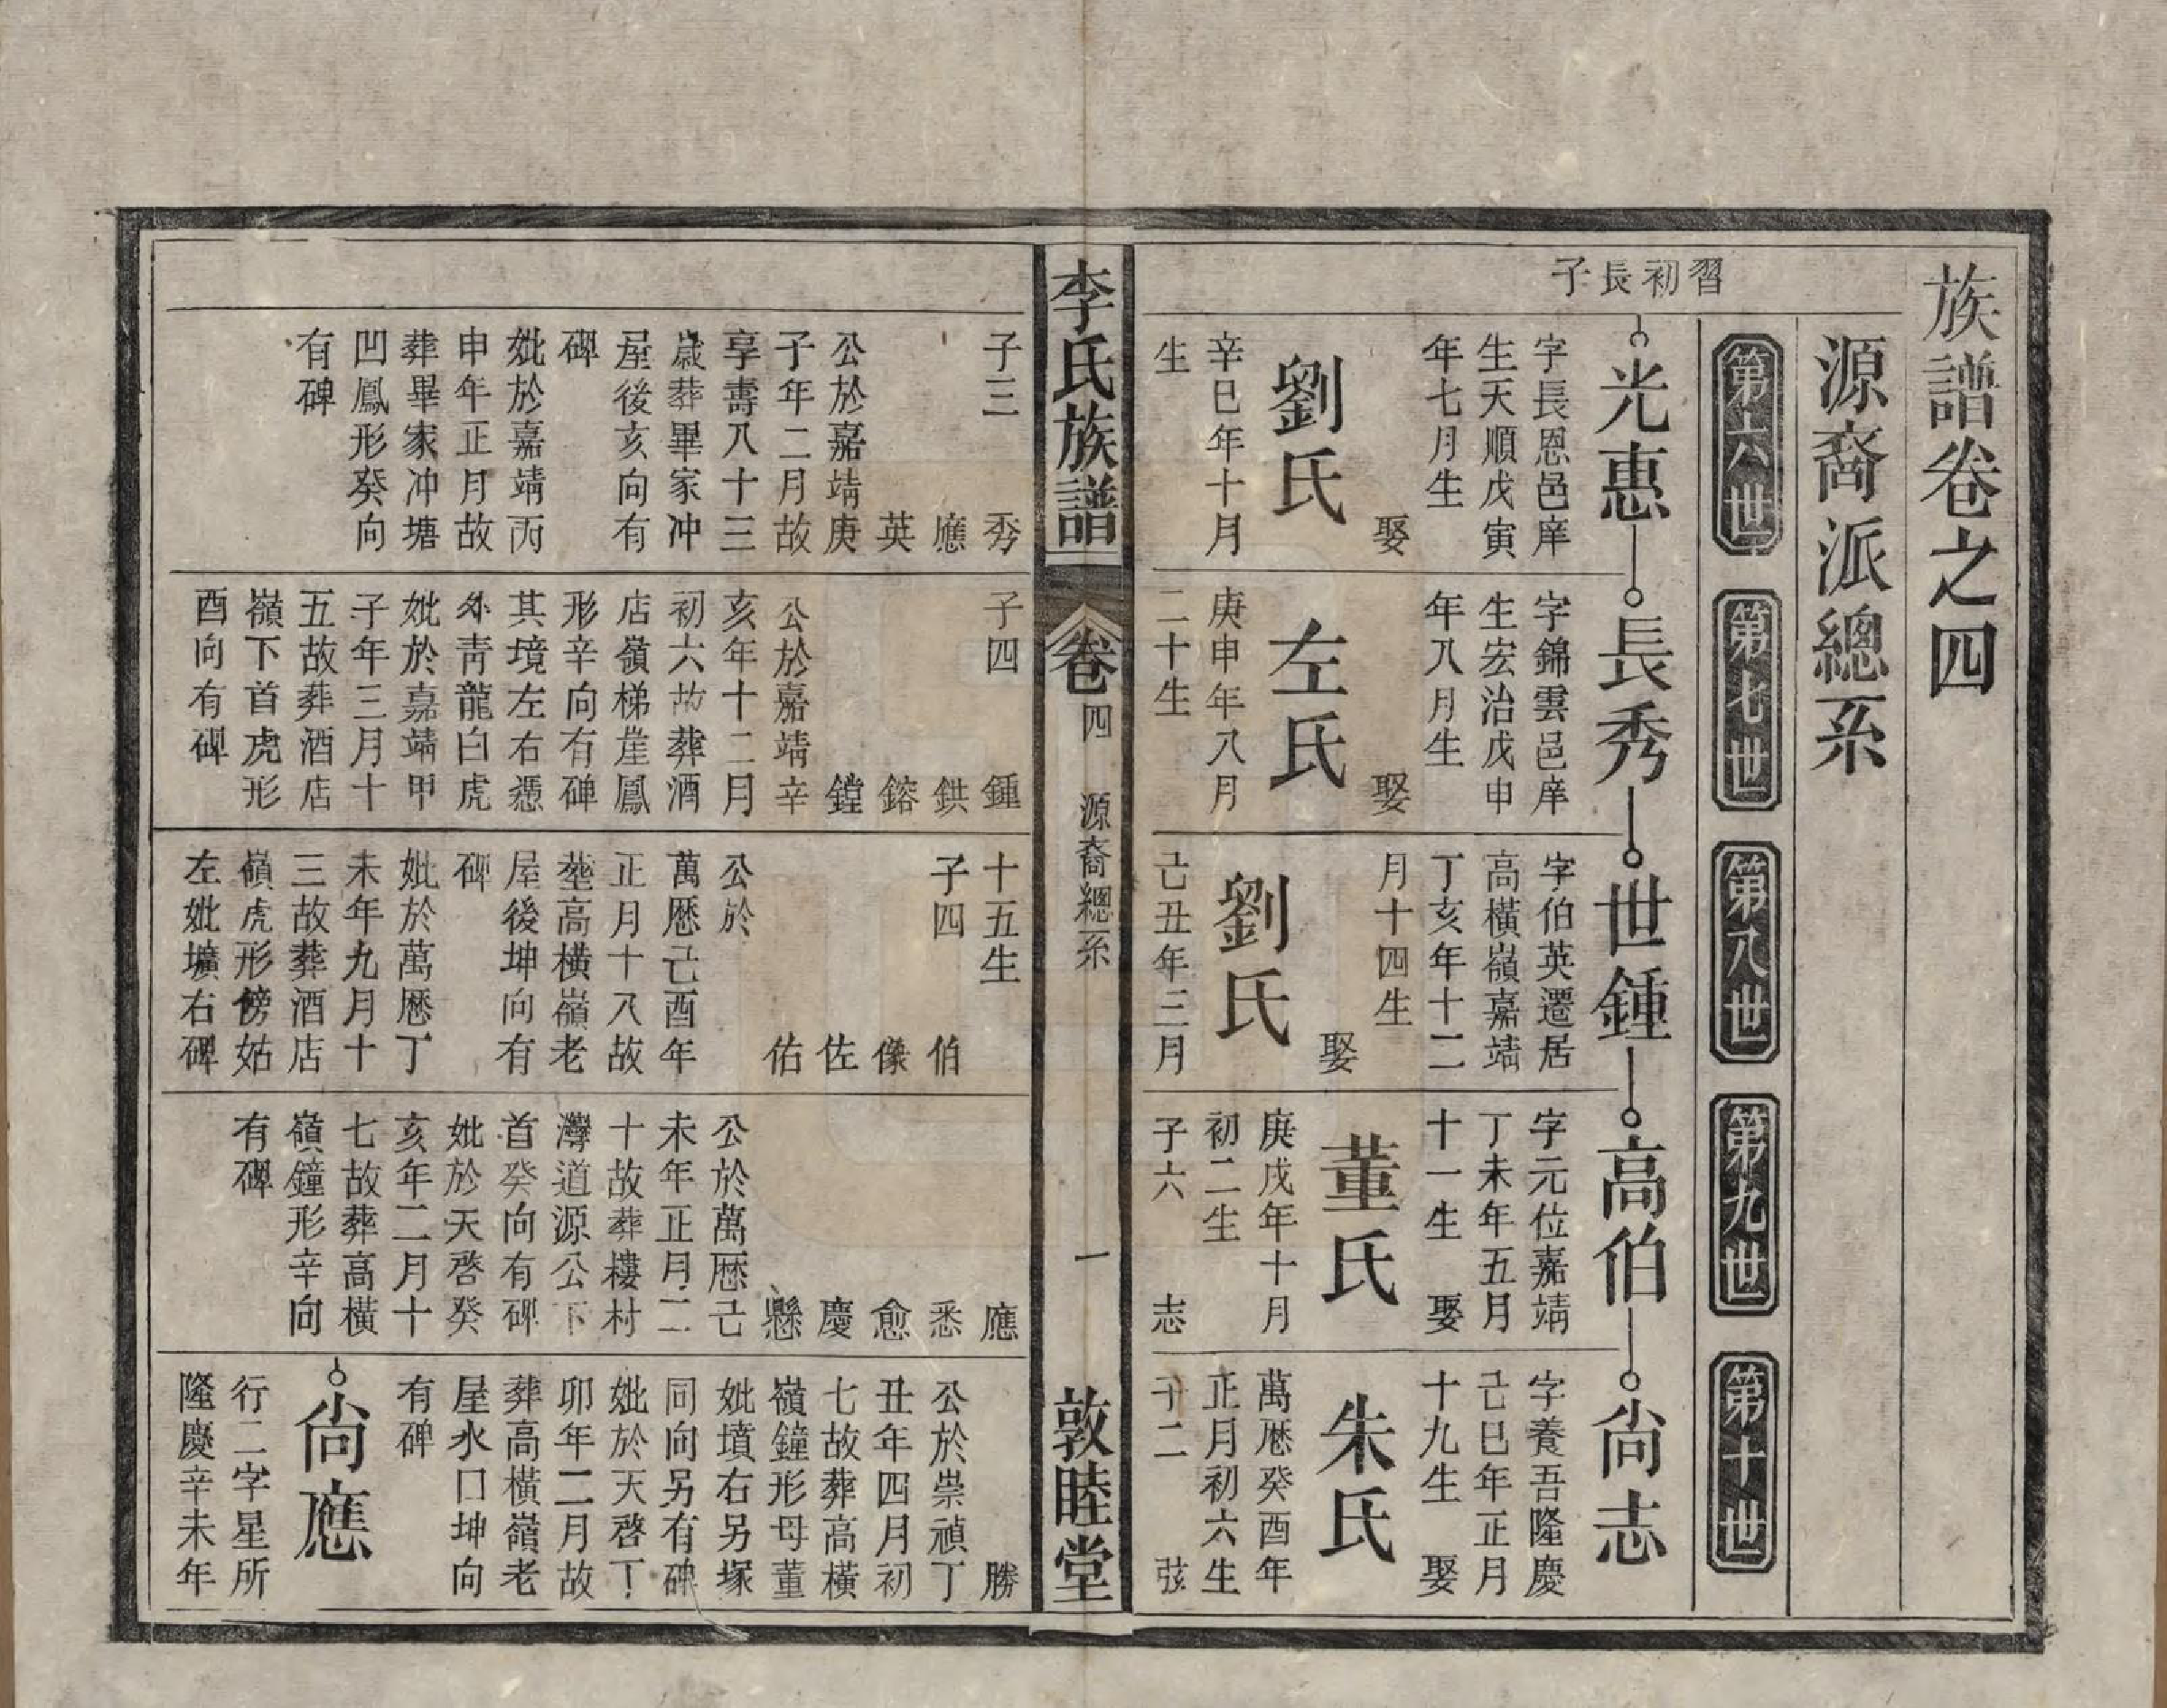 族譜卷之四
源裔派總系
第六世
第七世
第八世
第九世
第十世
習初長子
光惠
字長恩邑庠
生天順戊寅
年七月生
娶
劉氏
辛巳年十月
生
子三
秀
應
英
公於嘉靖庚
子年二月故
享壽八十三
歲葬畢家冲
屋後亥向有
碑
妣於嘉靖丙
申年正月故
葬畢家冲塘
凹鳳形癸向
有碑
長秀
字錦雲邑庠
生宏治戊申
年八月生
娶
左氏
庚申年八月
二十生
子四
鍾
鉷
鎔
鏜
公於嘉靖辛
亥年十二月
初六故葬酒
店嶺梯崖鳳
形辛向有碑
其境左右憑
外靑龍白虎
妣於嘉靖甲
子年三月十
五故葬酒店
嶺下首虎形
酉向有碑
世鍾
字伯英遷居
高橫嶺嘉靖
丁亥年十二
月十四生
娶
劉氏
己丑年三月
十五生
子四
伯
儝
佐
佑
公於
萬歷己酉年
正月十八故
塟高橫嶺老
屋後坤向有
碑
妣於萬歷丁
未年九月十
三故葬酒店
嶺虎形傍姑
左妣壙右碑
高伯
字元位嘉靖
丁未年五月
十一生
娶
董氏
庚戌年十月
初二生
子六
志
應
悉
愈
慶
懸
公於萬歷己
未年正月二
十故葬樓村
灣道源公下
首癸向有碑
妣於天啓癸
亥年二月十
七故葬高橫
嶺鐘形辛向
有碑
尙志
字養吾隆慶
己巳年正月
十九生
娶
朱氏
萬歷癸酉年
正月初六生
子二
弦
勝
公於崇禎丁
丑年四月初
七故葬高橫
嶺鐘形母董
妣墳右另塚
同向另有碑
妣於天啓丁
卯年二月故
葬高橫嶺老
屋水口坤向
有碑
尙應
行二字星所
隆慶辛未年
李氏族譜
卷四
源裔總系
一
敦睦堂